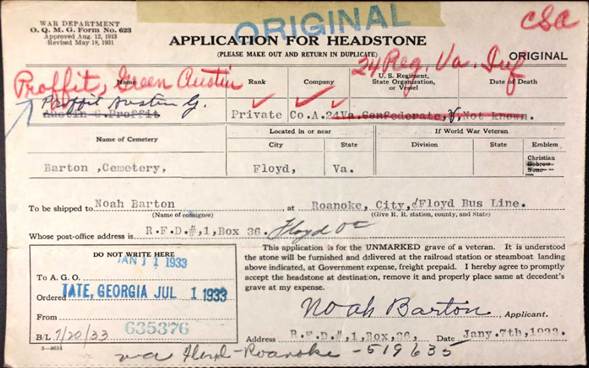 WAR DEPARTMENT
O. Q. M. G. Form No. 623
Approved Aug. 12, 1913
Revised May 18, 1931
ORIGINAL
CSA
APPLICATION FOR HEADSTONE
(PLEASE MAKE OUT AND RETURN IN DUPLICATE)
ORIGINAL
24 Reg. Va. Inf
Proffit, Green Austin
Name Rank Company U. S. Regiment, State Organization, or Vessel Date of Death
Proffit Austin G.
Austin G. Proffit Private Co. A. 24 Va. Confederate, Not known.
Name of Cemetery Located in or near If World War Veteran
City State Division State Emblem
Barton ,Cemetery, Floyd, Va. Christian Hebrew None
To be shipped to Noah Barton at Roanoke, City, Floyd Bus Line.
(Name of consignee) (Give R. R. station, county, and State)
Whose post-office address is R.F.D.#,1,Box 36. Floyd
DO NOT WRITE HERE
JAN 11 1933
To A. G. O.
Ordered TATE, GEORGIA JUL 1 1933
From
635376
B/L 7/20/33
3—8614
This application is for the UNMARKED grave of a veteran. It is understood
the stone will be furnished and delivered at the railroad station or steamboat landing
above indicated, at Government expense, freight prepaid. I hereby agree to promptly
accept the headstone at destination, remove it and properly place same at decedent's
grave at my expense.
Noah Barton Applicant.
Address R.F.D.#,1,Box,36, Date Jany.7th,1933.
via Floyd-Roanoke - 519635